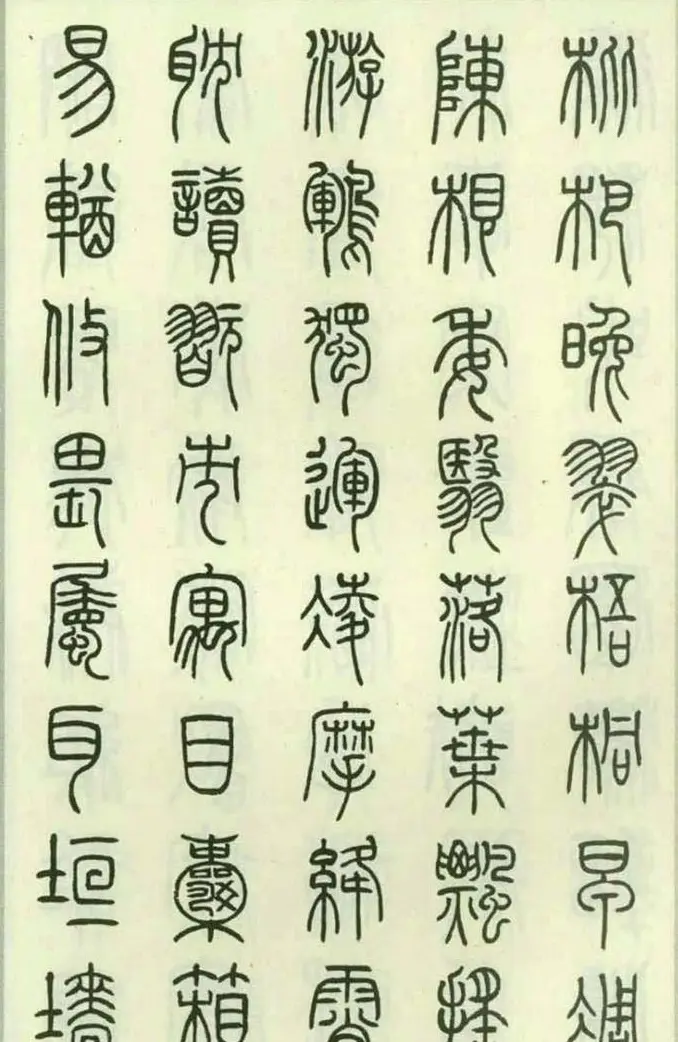 枇杷晚翠梧桐早凋
陳根委翳落葉飄搖
游鶤獨運凌摩絳霄
耽讀翫市寓目囊箱
易輶攸畏屬耳垣墻